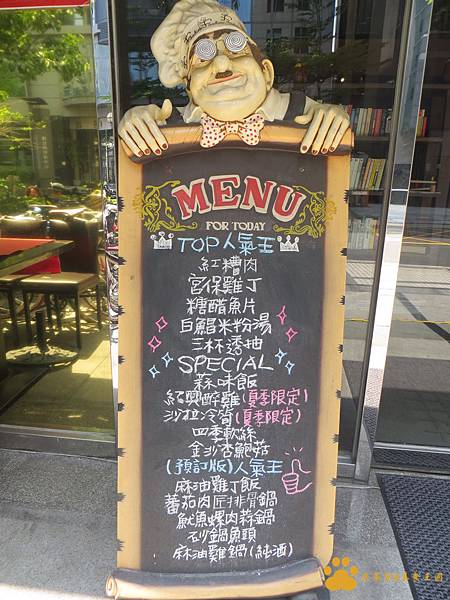 MENU
FOR TODAY
TOP人氣王
紅糟肉
宮保雞丁
糖醋魚片
白鯧米粉湯
三杯透抽
SPECIAL
蒜味飯
紹興醉雞(夏季限定)
沙拉冷筍(夏季限定)
四季軟絲
金沙杏鮑菇
(預訂版)人氣王
麻油雞丁飯
蕃茄肉匠排骨鍋
魷魚螺肉蒜鍋
砂鍋魚頭
麻油雞鍋(純酒)